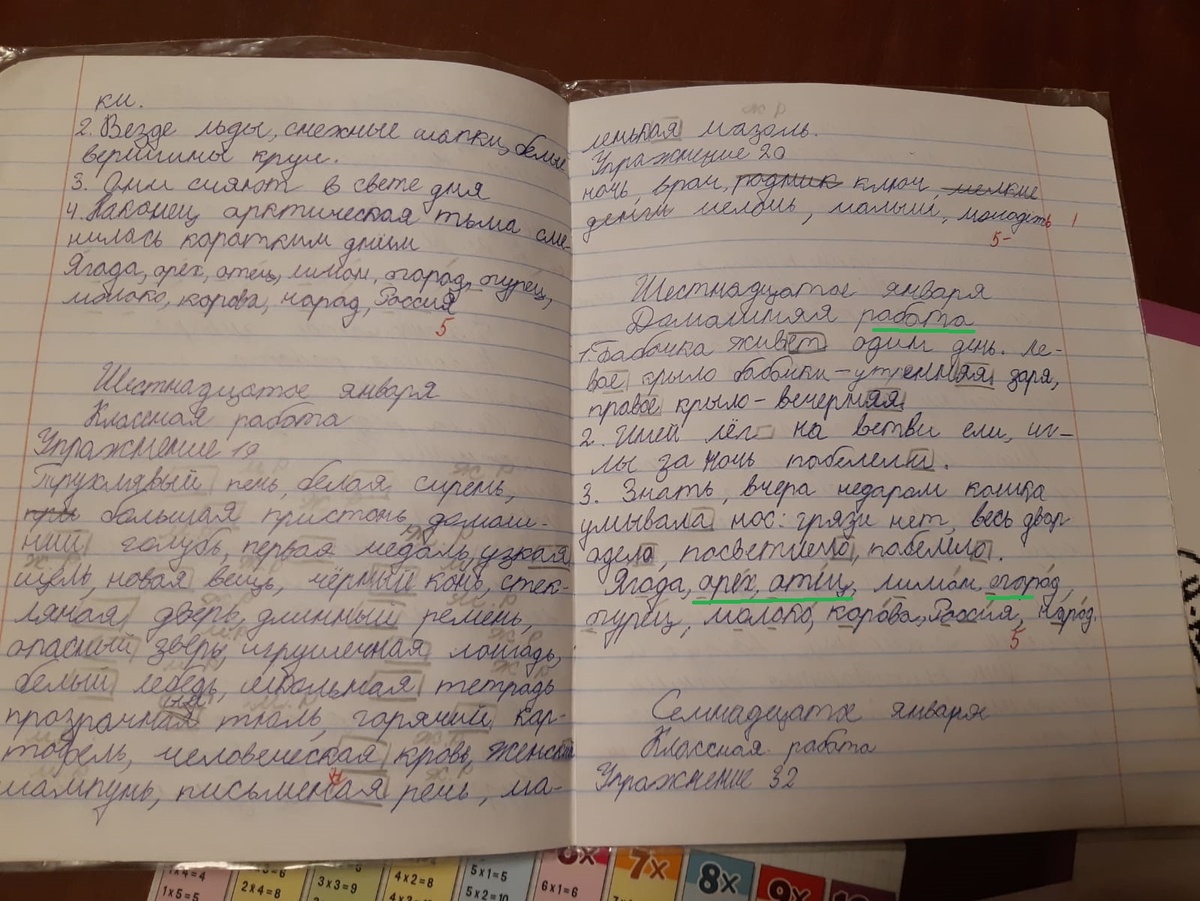 ки.
2. Везде льды, снежные шапки, белые
верши́ны круч.
3. Они сияют в свете дня
4. Наконец арктическая тьма сме-
нилась каратким днём
Ягода, оре́х, оте́ц, лимо́н, огоро́д, огуре́ц,
молоко́, корова, народ, Россия
5
Шестнадцатое января
Классная работа
Упражнение 19
Трухлявый пень, белая сирень,
при большая пристонь, домаш-
ний голубь, первая медаль, узкая
щель, новая вещь, чёрный конь, стек-
ляная дверь, длинный ремень,
опасный зверь, игрушечная лошадь,
белый лебедь, школьная тетрадь
прозрачная тюль, горячий кар-
тофель, человеческая кровь, женский
шампунь, письменая речь, ма-
н
ленькая мазоль.
Упражнение 20
ночь, врач, родник ключ, мелкие
деньги мелочь, малыш,
5-
Шестнадцатое января
Домашняя работа
1. Бабочка живёт один день. Ле-
вое крыло бабочки – утренняя заря,
правое крыло – вечерняя
2. Иней лёг на ветви ели, иг-
лы за ночь побелели.
3. Знать, вчера недаром кошка
умывала нос: грязи нет, весь двор
одело, посветлело, побелело.
Ягода, оре́х, оте́ц, лимо́н, огоро́д,
огуре́ц, молоко́, коро́ва, Росси́я, наро́д.
5
Семнадцатое января
Классная работа
Упражнение 32
1x4=4
1x5=5
2x4=8
3x3=9
4x2=8
5x1=5
5x2=10
6x1=6
6x
7x
8x
9x